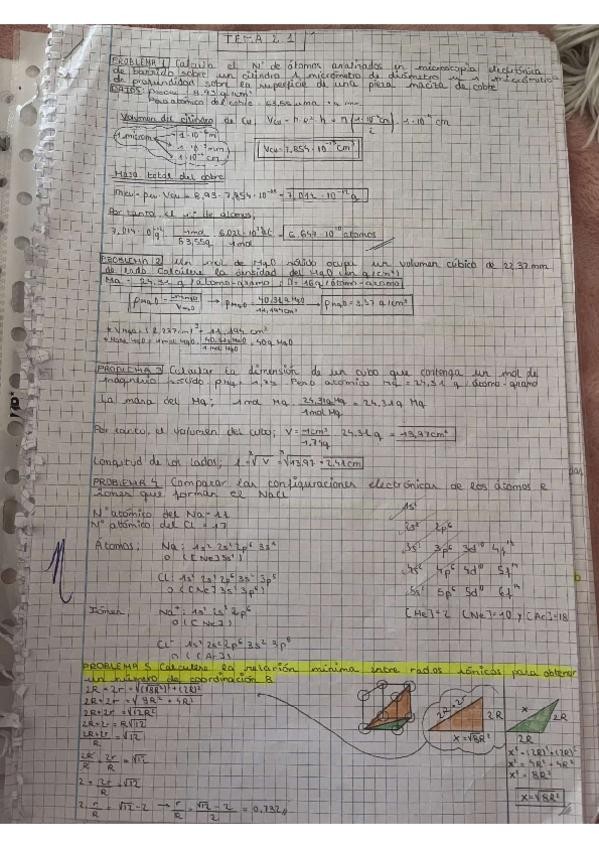 TEMA 2.1
PROBLEMA 1 Calcula el Nº de átomos analizados en microscopía electrónica
de barrido sobre un cilindro 1 micrómetro de diámetro y 1 micrómetro
de profundidad sobre la superficie de una pieza maciza de cobre
DATOS: 8,93 g/cm³
Peso atómico del cobre 63,55 uma
Volumen del cilindro de Cu, Vcu = π · R² · h = π (1·10⁻⁴/2)² · 1·10⁻⁴ cm
1 microm 1·10⁻⁶ m
1·10⁻³ mm
1·10⁻⁴ cm
Vcu = 7,854·10⁻¹³ cm³
Masa total del cobre
Vcu = 8,93 · 7,854·10⁻¹³ = 7,014·10⁻¹² g
Por tanto, el nº de átomos;
7,014·10⁻¹² g · 1mol/63,55g · 6,022·10²³ /1mol = 6,647·10¹⁰ átomos
PROBLEMA 2 Un mol de MgO sólido ocupa un volumen cúbico de 22,37 mm
de lado. Calculese la densidad del MgO (en g/cm³)
24,31 g/átomo-gramo; O = 16g/átomo-gramo
ρMgO = ρMgO = 40,31g MgO/11,194cm³ ρMgO = 3,37 g/cm³
* VMgO = (2,237cm)³ = 11,194 cm³
PROBLEMA 3 Calcular la dimensión de un cubo que contenga un mol de
magnesio Peso atómico Mg = 24,31 g/átomo-gramo
La masa del Mg; 1mol Mg · 24,31g Mg/1mol Mg = 24,31g Mg
Por tanto, el volumen del cubo; V = 1cm³/1,74g · 24,31g = 13,97cm³
Longitud de los lados; l = ³√V = ³√13,97 = 2,41cm
PROBLEMA 4 Comparar las configuraciones electrónicas de los átomos e
iones que forman el NaCl
Nº atómico del Na = 11
Nº atómico del Cl = 17
Átomos; Na: 1s² 2s² 2p⁶ 3s¹
o ([Ne] 3s¹)
Cl: 1s² 2s² 2p⁶ 3s² 3p⁵
o ([Ne] 3s² 3p⁵)
Iones; Na⁺: 1s² 2s² 2p⁶
o ([Ne])
Cl⁻ 1s² 2s² 2p⁶ 3s² 3p⁶
o ([Ar])
1s²
2s² 2p⁶
3s² 3p⁶ 3d¹⁰ 4f¹⁴
4s² 4p⁶ 4d¹⁰ 5f¹⁴
5s² 5p⁶ 5d¹⁰ 6f¹⁴
[He] = 2 [Ne] = 10 y [Ar] = 18
PROBLEMA 5 Calculese la relación mínima entre radios iónicos para obtener
un número de coordinación 8
2R + 2r = √(√8R²)² + (2R)²
2R + 2r = √8R² + 4R²
2R + 2r = √12R²
2R + 2r = R√12
2R + 2r / R = √12
2R/R + 2r/R = √12
2 + 2r/R = √12
2 · r/R = √12 - 2 → r/R = √12 - 2 / 2 = 0,732
2R + 2r
2R
x = √8R²
x
2R
2R
x² = (2R)² + (2R)²
x² = 4R² + 4R²
x² = 8R²
x = √8R²